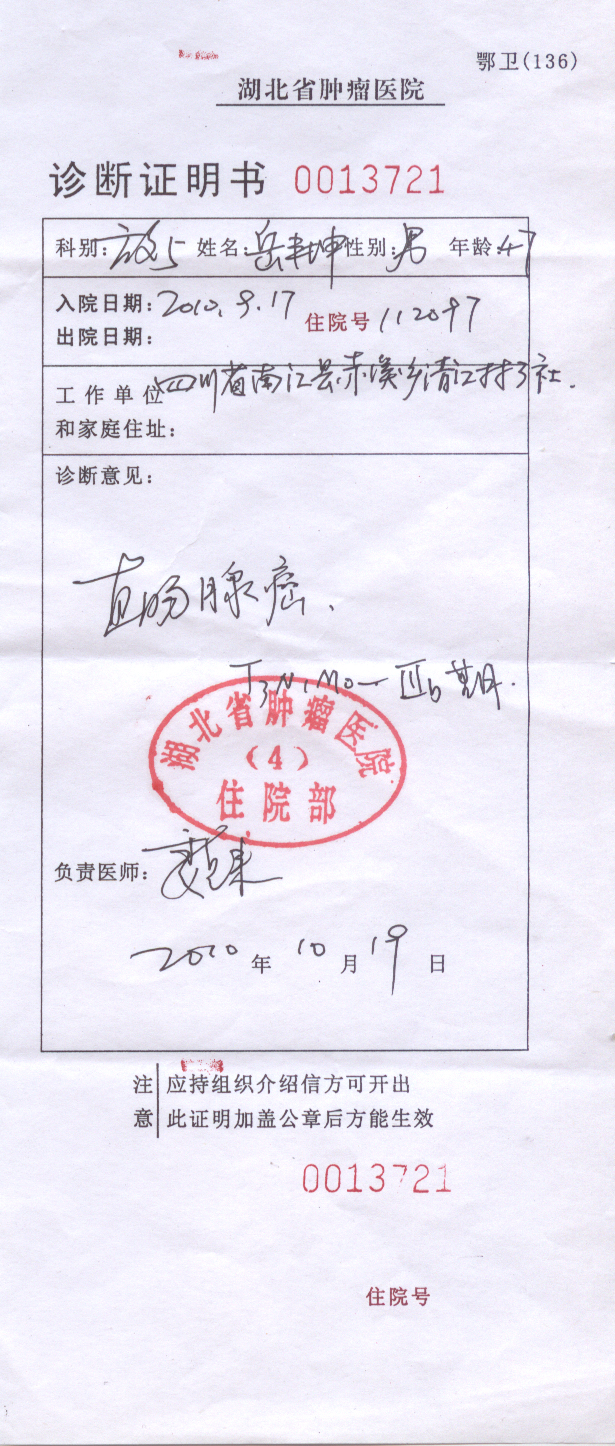 鄂卫(136)
湖北省肿瘤医院
诊断证明书 0013721
科别:放5 姓名:岳耒坤 性别:男 年龄:47
入院日期:2010.9.17 住院号 112097
出院日期:
工作单位 四川省南江县赤溪乡清江村3社.
和家庭住址:
诊断意见:
直肠腺癌、
T3N1M0—Ⅲb期.
湖北省肿瘤医院
(4)
住院部
负责医师:
2010 年 10 月 19 日
注 应持组织介绍信方可开出
意 此证明加盖公章后方能生效
0013721
住院号